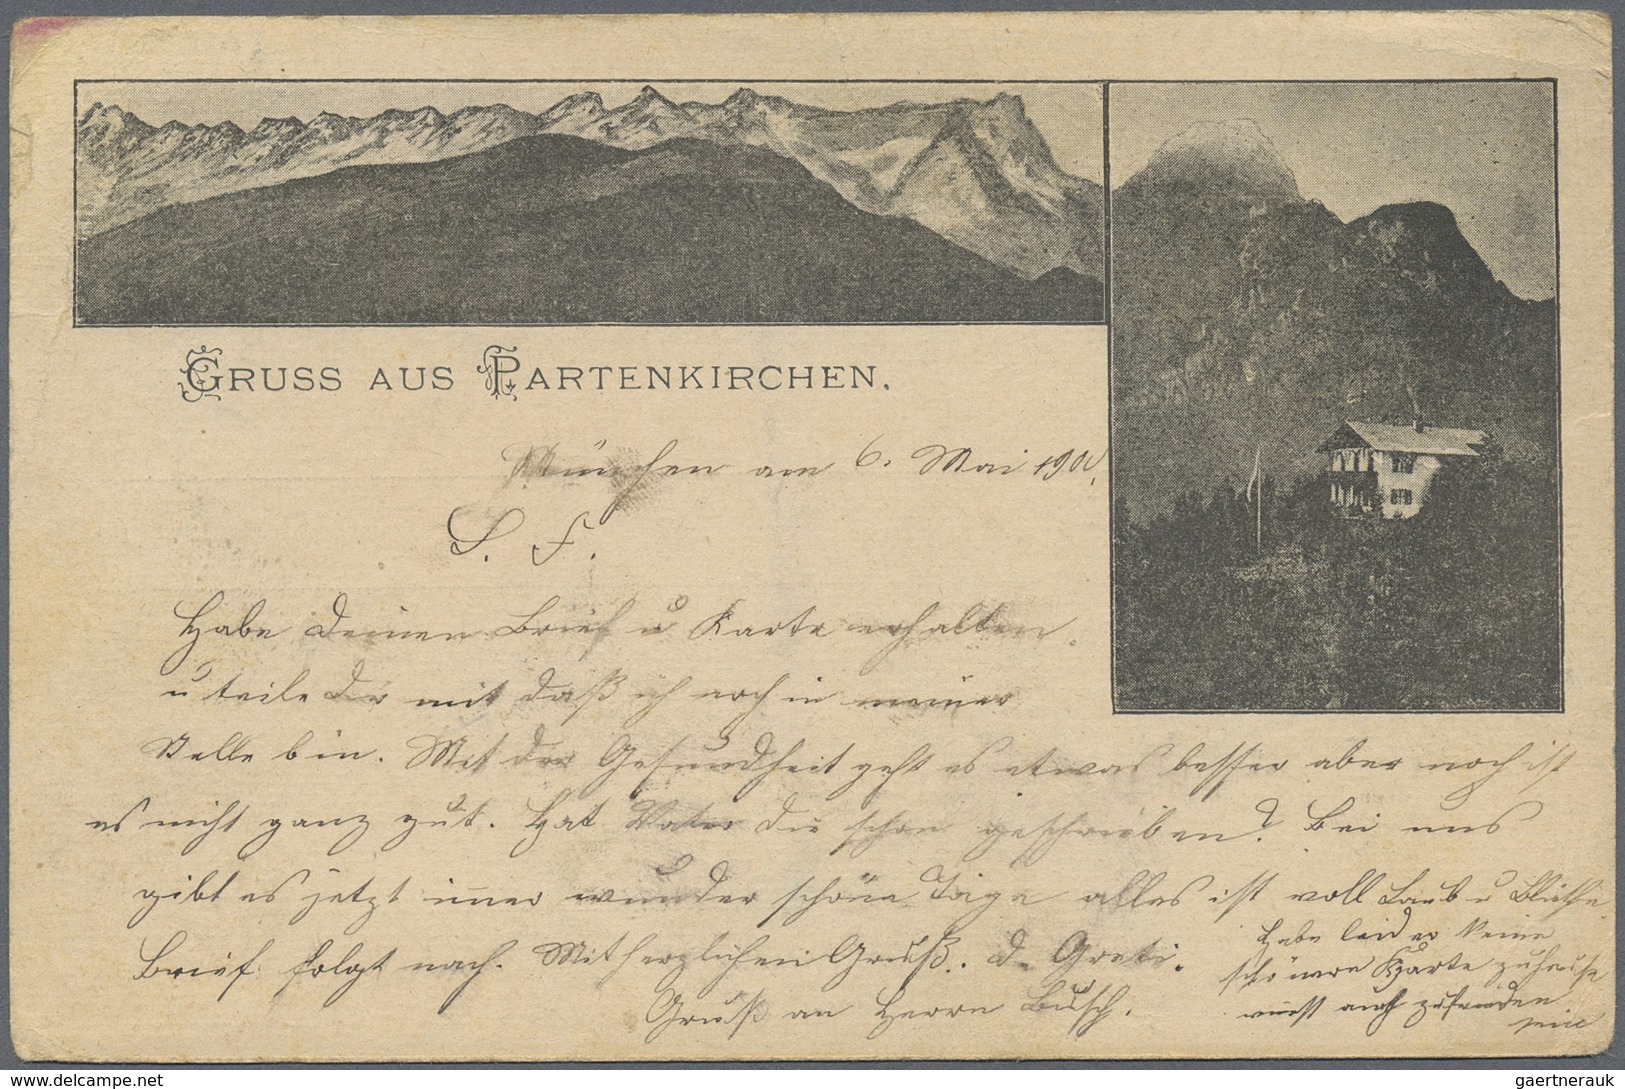 GRUSS AUS PARTENKIRCHEN.
München am 6. Mai 1900.
L. F.
Habe Deinen Brief u Karte erhalten
u teile Dir mit daß ich noch in meiner
Stelle bin. Mit der Gesundheit geht es etwas besser aber noch ist
es nicht ganz gut. Hat Vater Dir schon geschrieben? Bei uns
gibt es jetzt im̅er wunder schöne Tage alles ist voll Laub u Blüthe
Brief folgt nach. Mit herzlichen Gruß. D. Greti.
Gruß an Herrn Busch.
Habe leider keine
schönere Karte zuhause
wirst auch zufrieden
sein
delcampe.net
gaertnerauk